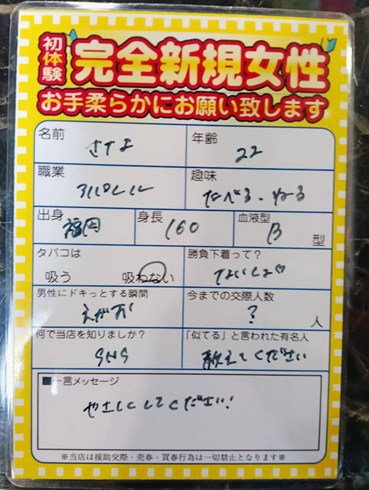 初体験
完全新規女性
お手柔らかにお願い致します
名前
さすよ
年齢
22
職業
アパレル
趣味
たべる、ねる
出身
福岡
身長
160
血液型
B 型
タバコは
吸う 吸わない
勝負下着って?
ないしょ♡
男性にドキっとする瞬間
えがお
今までの交際人数
? 人
何で当店を知りましたか?
SNS
「似てる」と言われた有名人
教えてください
■一言メッセージ
やさしくしてください!
※当店は援助交際・売春・買春行為は一切禁止となります※